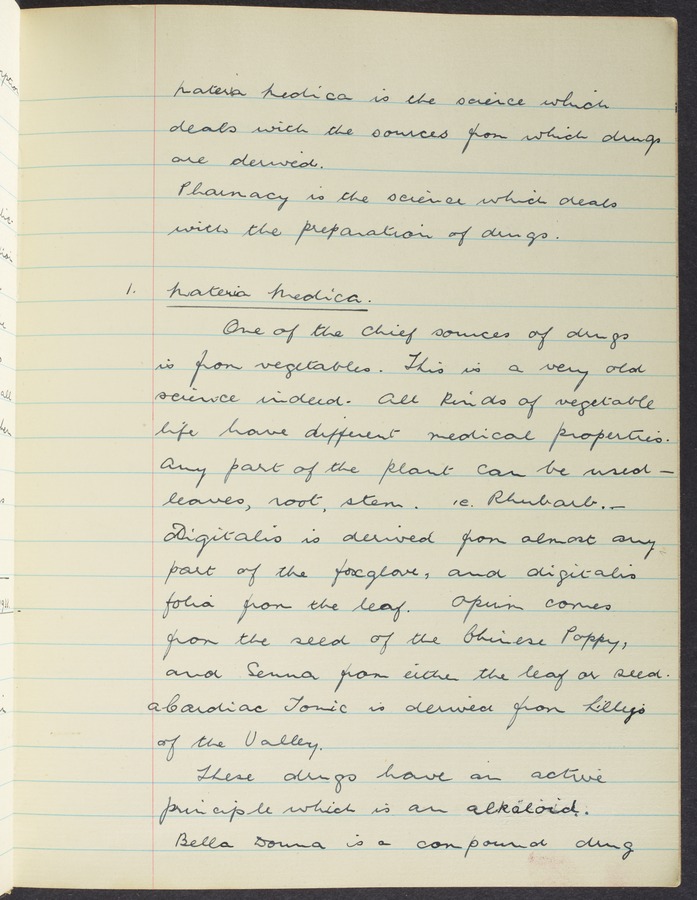 Materia Medica is the science which
deals with the sources from which drugs
are derived.
Pharmacy is the science which deals
with the preparation of drugs.
1. Materia Medica.
One of the chief sources of drugs
is from vegetables. This is a very old
science indeed. All kinds of vegetable
life have different medical properties.
Any part of the plant can be used —
leaves, root, stem. ie. Rhubarb. –
Digitalis is derived from almost any
part of the foxglove, and digitalis
folia from the leaf. Opium comes
from the seed of the Chinese Poppy,
and Senna from either the leaf or seed.
a Cardiac Tonic is derived from Lillys
of the Valley.
These drugs have an active
principle which is an alkaloid.
Bella Donna is a compound drug